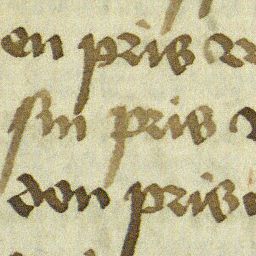 en pris
sin pris
don pris